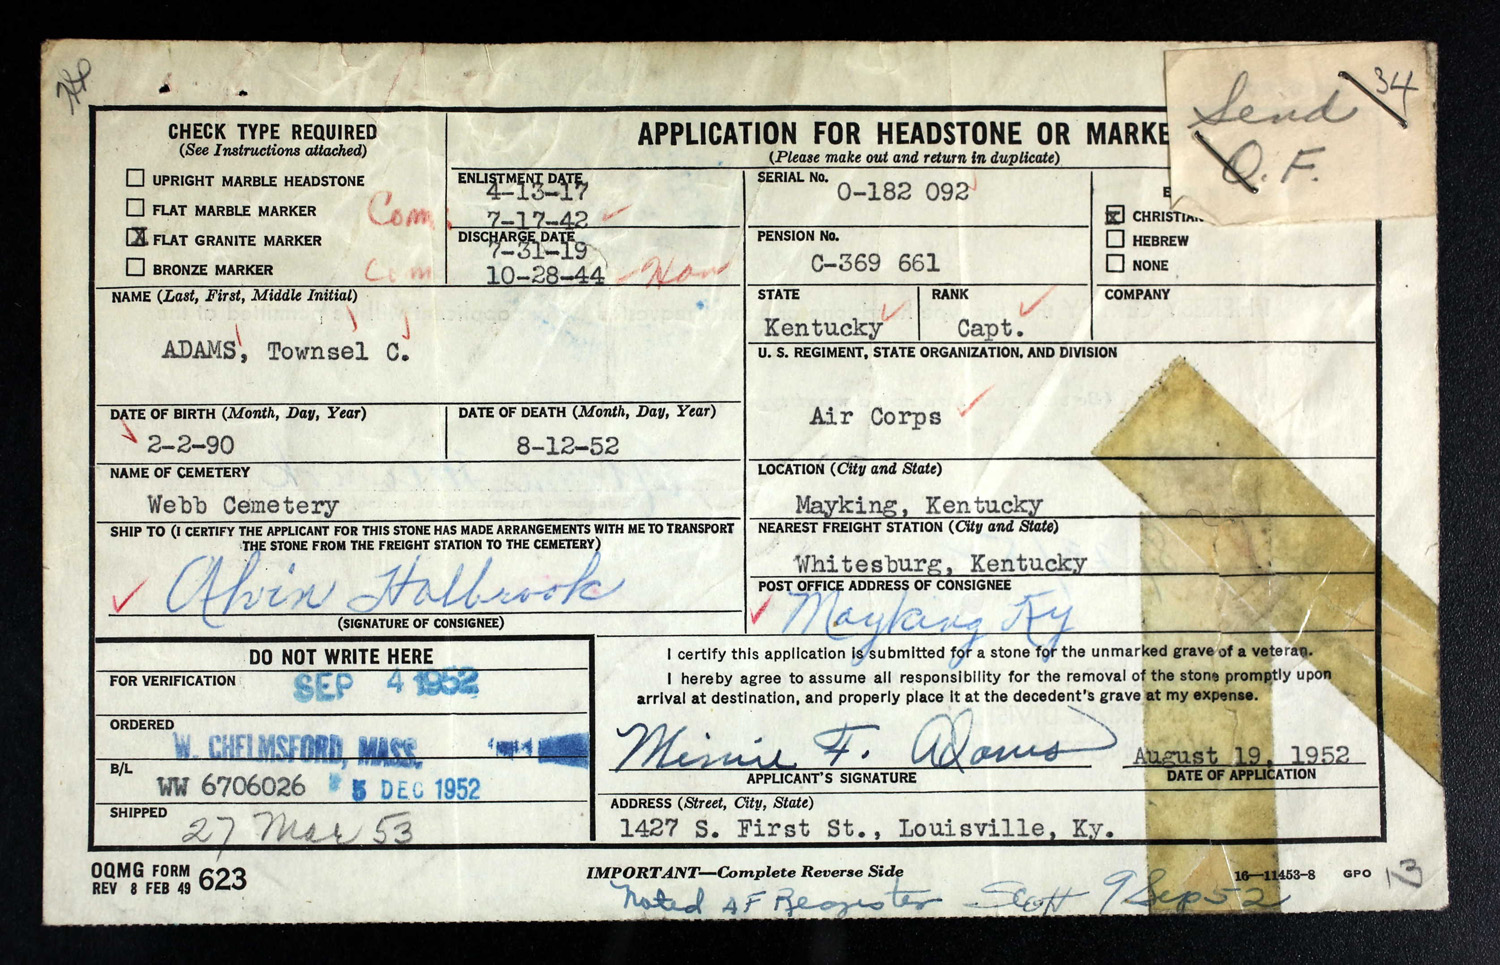 Send 34
O.F.
CHECK TYPE REQUIRED
(See Instructions attached)
UPRIGHT MARBLE HEADSTONE
FLAT MARBLE MARKER
X FLAT GRANITE MARKER
BRONZE MARKER
Com.
Com
APPLICATION FOR HEADSTONE OR MARKE
(Please make out and return in duplicate)
ENLISTMENT DATE
4-13-17
7-17-42
DISCHARGE DATE
7-31-19
10-28-44
SERIAL No.
O-182 092
PENSION No.
C-369 661
E
X CHRISTIAN
HEBREW
NONE
NAME (Last, First, Middle Initial)
ADAMS, Townsel C.
STATE
Kentucky
RANK
Capt.
COMPANY
U. S. REGIMENT, STATE ORGANIZATION, AND DIVISION
Air Corps
DATE OF BIRTH (Month, Day, Year)
2-2-90
DATE OF DEATH (Month, Day, Year)
8-12-52
NAME OF CEMETERY
Webb Cemetery
LOCATION (City and State)
Mayking, Kentucky
SHIP TO (I CERTIFY THE APPLICANT FOR THIS STONE HAS MADE ARRANGEMENTS WITH ME TO TRANSPORT
THE STONE FROM THE FREIGHT STATION TO THE CEMETERY)
Alvin Holbrook
(SIGNATURE OF CONSIGNEE)
NEAREST FREIGHT STATION (City and State)
Whitesburg, Kentucky
POST OFFICE ADDRESS OF CONSIGNEE
Mayking Ky
DO NOT WRITE HERE
FOR VERIFICATION
SEP 4 1952
ORDERED
W. CHELMSFORD, MASS.
B/L
WW 6706026 5 DEC 1952
SHIPPED
27 Mar 53
I certify this application is submitted for a stone for the unmarked grave of a veteran.
I hereby agree to assume all responsibility for the removal of the stone promptly upon
arrival at destination, and properly place it at the decedent's grave at my expense.
Minnie F. Adams
APPLICANT'S SIGNATURE
August 19, 1952
DATE OF APPLICATION
ADDRESS (Street, City, State)
1427 S. First St., Louisville, Ky.
OQMG FORM 623
REV 8 FEB 49
IMPORTANT—Complete Reverse Side
16—11453-8 GPO
13
Noted AF Register Scott 9 Sep 52